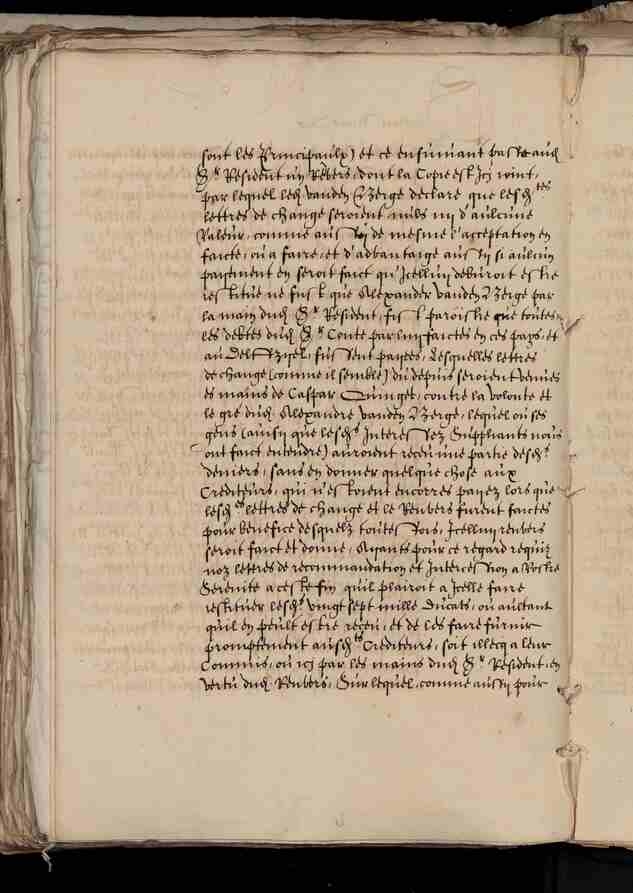 sont les Principaulx) et ce ensuivant passe aud.
Sr Resident un Revers, dont la Copie est Icy joint,
par lequel led. vanden Berge declare que lesd.tes
lettres de change seroient nuls ny d'aulcune
Valeur, comme aussy de mesme l'acceptation en
faicte, ou a faire, et d'advantaige aussy si aulcun
payement en seroit faict qu'Icelluy debvroit estre
restitue ne fust que Alexander vanden Berge par
la main dud. Sr Resident, fist paroistre que toutes
les debtes dud. Sr Conte par luy faictes en ces pays, et
au Delft Zyel, fussent payees, Lesquelles lettres
de change (comme il semble) du depuis seroient venues
es mains de Caspar Quinget, contre la volonte et
le gre dud. Alexandre vanden Berge, lequel ou ses
gens (ainsy que lesd.s Interessez Suppliants nous
ont faict entendre) auroient receu une partie desd.s
deniers, sans en donner quelque chose aux
Crediteurs, qui n'estoient encorres payez lors que
lesd.es lettres de change et le Renvers furent faictes
pour benefice desquelz toutesfois, Icelluy renvers
seroit faict et donne, Ayants pour ce regard requiz
noz lettres de recommandation et Intercession a Vostre
Serenite a ceste fin quil plairoit a Icelle faire
restituer lesd.s vingt sept mille Ducats, ou aultant
quil en peult estre receu, et de les faire furnir
promptement ausd.tes Crediteurs, soit illecq a leur
Commis, ou icy par les mains dud. Sr Resident, en
vertu dud. Renvers, Sur lequel, comme aussy pour